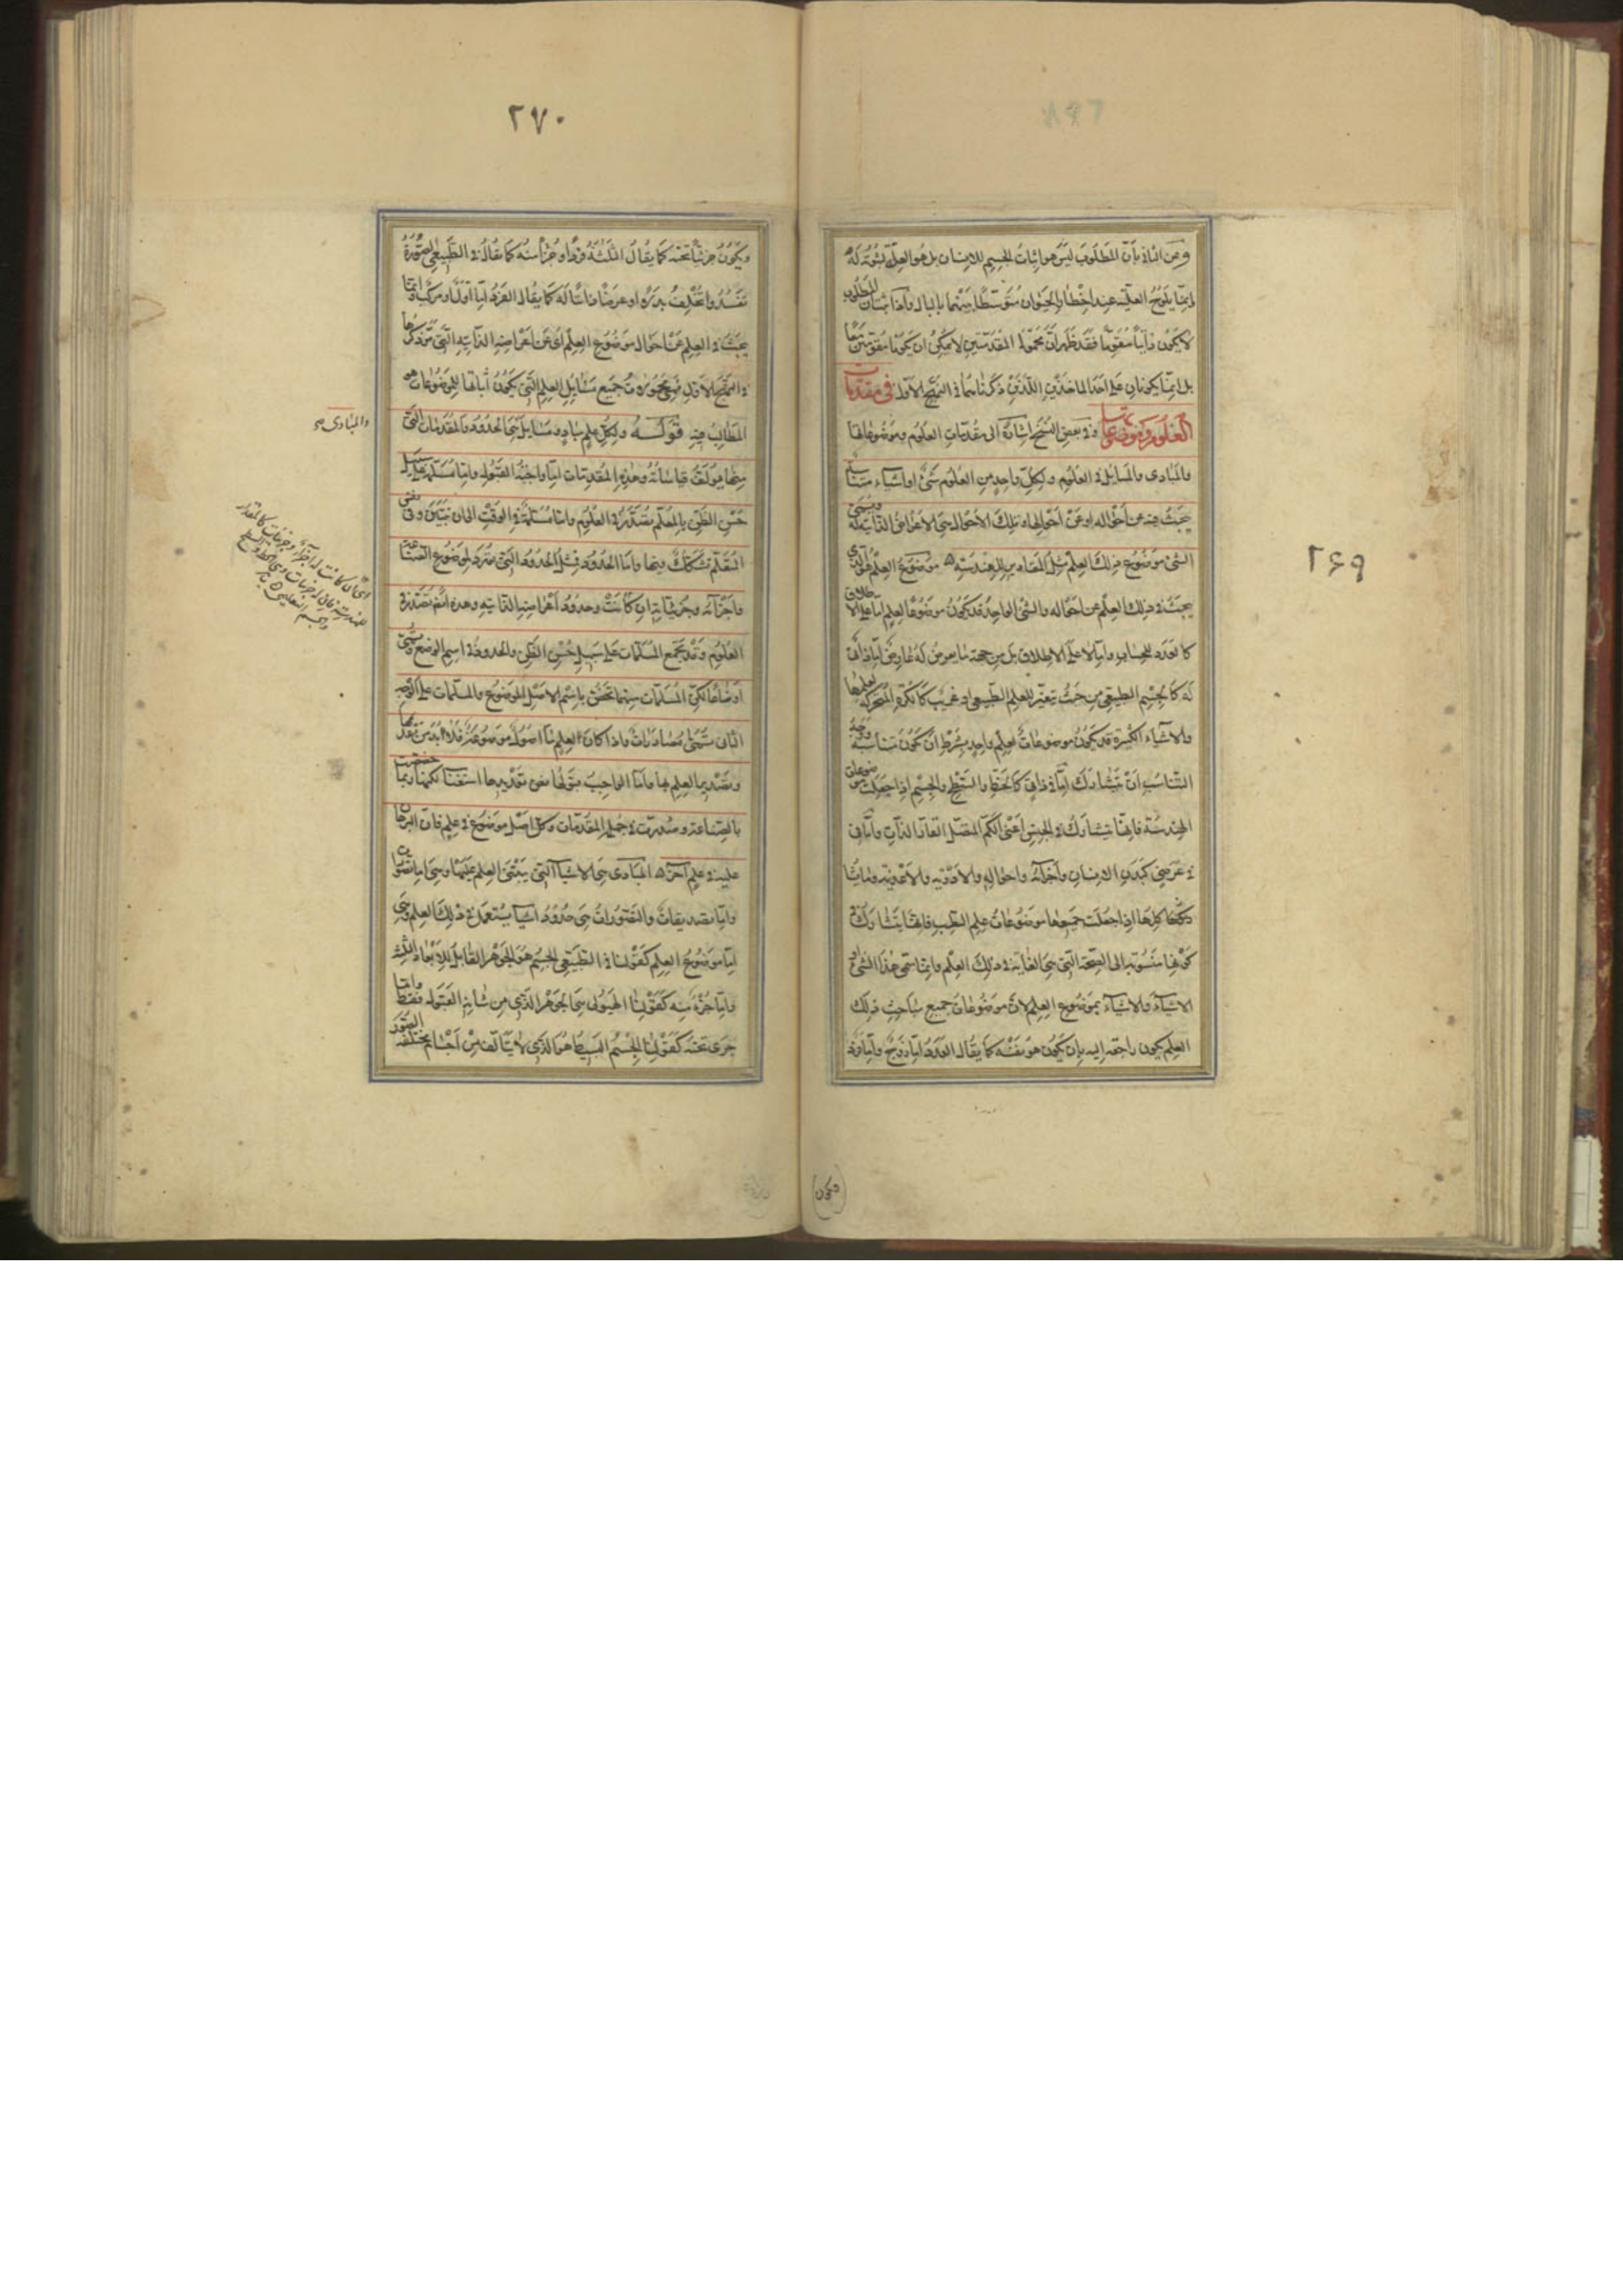 ٢٦٩
وعن الثاني بأن المطلوب ليس هو اثبات الجسم للانسان بل هو العلة لثبوته له
وانما يلوح العلية عند اخطار الحيوان متوسطا بينهما بالبال واذا ثبت ان المطلوب
لا يكون ذاتيا مقوما فقد ظهر ان محمولا المقدمتين لا يمكن ان يكونا مقومتين معا
بل انما يكونان على احد الماخذين اللذين ذكرناهما في النهج الاول في مقدمات
العلوم وموضوعاتها وفي بعض النسخ اشارة الى مقدمات العلوم وموضوعاتها
والمبادى والمسايل في العلوم ولكل واحد من العلوم شئ او اشياء متناسبة
يبحث فيه عن احواله او عن احوالها وتلك الاحوال هي الاعراض الذاتية له ويسمى
الشئ موضوع ذلك العلم مثل المقادير للهندسة ه موضوع العلم هو الذى
يبحث في ذلك العلم عن احواله والشئ الواحد قد يكون موضوعا لعلم اما على الاطلاق
كالعدد للحساب واما لا على الاطلاق بل من جهة ما يعرض له عارض اما ذاتى
له كالجسم الطبيعى من حيث يتغير للعلم الطبيعى او غريب كالكرة المتحركة لعلمها
والاشياء الكثيرة قد يكون موضوعات لعلم واحد بشرط ان تكون متناسبة ووجه
التناسب ان تتشارك اما في ذاتى كالخط والسطح والجسم اذا جعلت موضوعات
الهندسة فانها تتشارك في الجنس اعنى الكم المتصل القار الذات واما في
في عرضى كبدن الانسان واجزائه واحواله والادوية والاغذية وما يشا
كلها اذا جعلت جميعها موضوعات علم الطب فانها يتشارك في
كونها منسوبة الى الصحة التى هى الغاية في ذلك العلم وانما سمى هذا الشئ او
الاشياء والاشياء بموضوع العلم لان موضوعات جميع مباحث ذلك
العلم يكون راجعة اليه بان يكون هو نفسه كما يقال العدد اما زوج واما فرد
ويكون
٢٧٠
ويكون جزئيا تحته كما يقال الثلثة فرد او جزأ منه كما يقال في الطبيعى الصورة
تفسد وتخلف بدله او عرضا ذاتيا له كما يقال الفرد اما اول او مركب وانما
يبحث في العلم عن احوال موضوع العلم اى عن اعراضه الذاتية التى مر ذكرها
في النهج الاول فهى محمولات جميع مسايل العلم التى يكون اثباتها للموضوعات هو
المطالب فيه قولــه ولكل علم مباد ومسايل هى الحدود والمقدمات التى
منها يولف قياساته وهذه المقدمات اما واجبة القبول واما مسلمة على سبيل
حسن الظن بالمعلم تصدر في العلوم واما مسلمة في الوقت الى ان تتبين وفى نفس
المتعلم تشكك فيها واما الحدود فمثل الحدود التى تورد لموضوع الصناعة
واجزائه وجزئياته ان كانت وحدود اعراضه الذاتية وهذه ايضا تصدر في
العلوم وقد يجمع المسلمات على سبيل حسن الظن والحدود في اسم الوضع وتسمى
اوضاعا لكن المسلمات منها تختص باسم الاصل الموضوع والمسلمات على الوجه
الثانى تسمى مصادرات واذا كان لعلم ما اصول موضوعة فلا بد من تقديمها
وتصدير العلم بها واما الواجب قبولها فعن تعديدها استغناء لكنها ربما خصصت
بالصناعة وصدرت في جملة المقدمات وكل اصل موضوع في علم فان البرهان
عليه في علم آخر ه المبادى هى الاشياء التى يبتنى العلم عليها وهى اما تصورات
واما تصديقات والتصورات هى حدود اشياء يستعمل في ذلك العلم وهى
اما موضوع العلم كقولنا في الطبيعى الجسم هو الجوهر القابل للابعاد الثلثة
واما جزء منه كقولنا الهيولى هى الجوهر الذى من شانه القبول فقط واما
جزئى تحته كقولنا الجسم البسيط هو الذى لا يتالف من اجسام مختلفة الصور
والمبادى